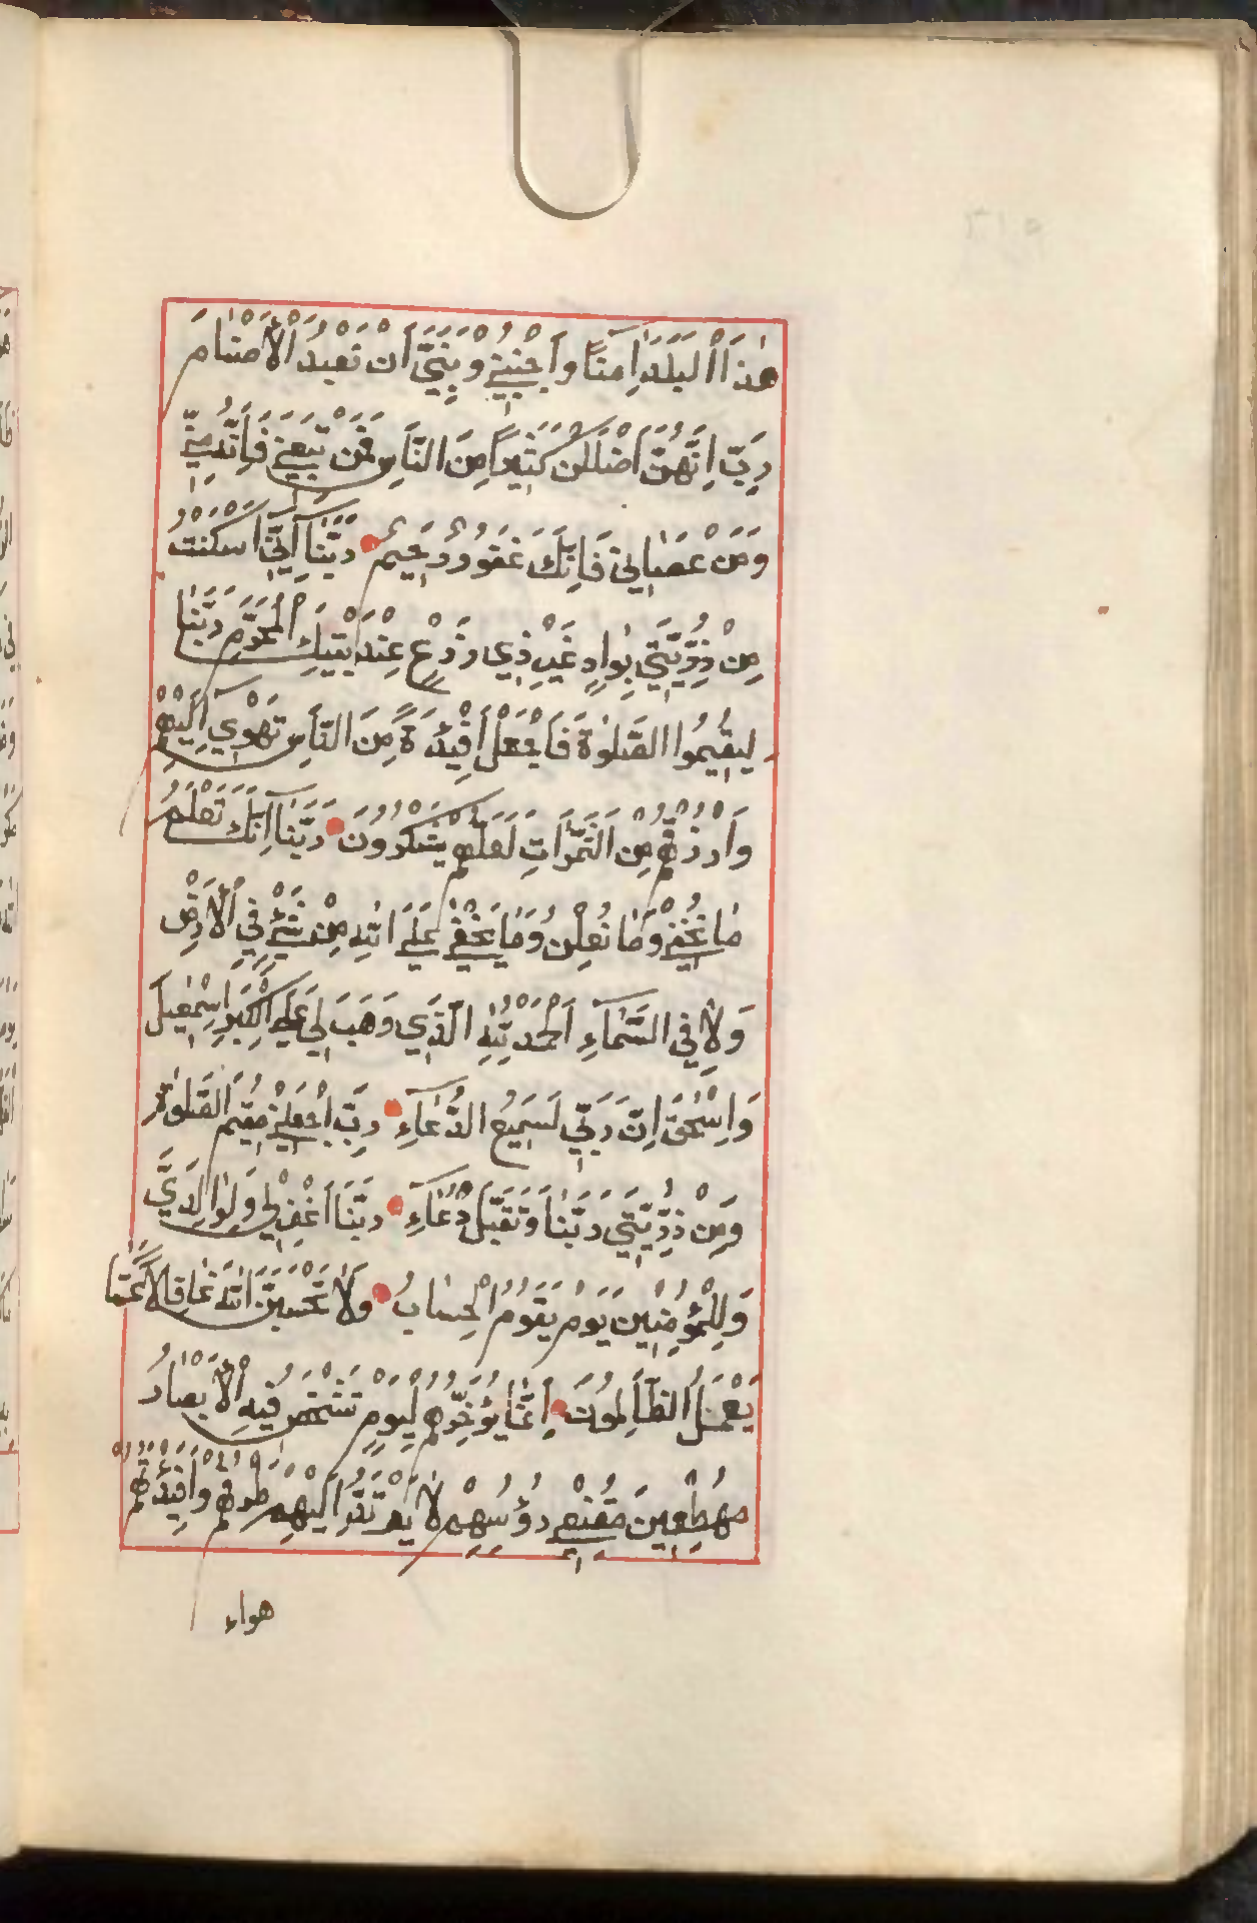 هٰذَا الْبَلَدَ اٰمِنًا وَاجْنُبْنِي وَبَنِيَّ اَنْ نَعْبُدَ الْاَصْنَامَ
رَبِّ اِنَّهُنَّ اَضْلَلْنَ كَثِيرًا مِنَ النَّاسِ فَمَنْ تَبِعَنِي فَاِنَّهُ مِنِّي
وَمَنْ عَصَانِي فَاِنَّكَ غَفُورٌ رَحِيمٌ رَبَّنَا اِنِّي اَسْكَنْتُ
مِنْ ذُرِّيَّتِي بِوَادٍ غَيْرِ ذِي زَرْعٍ عِنْدَ بَيْتِكَ الْمُحَرَّمِ رَبَّنَا
لِيُقِيمُوا الصَّلٰوةَ فَاجْعَلْ اَفْئِدَةً مِنَ النَّاسِ تَهْوِي اِلَيْهِمْ
وَارْزُقْهُمْ مِنَ الثَّمَرَاتِ لَعَلَّهُمْ يَشْكُرُونَ رَبَّنَا اِنَّكَ تَعْلَمُ
مَا نُخْفِي وَمَا نُعْلِنُ وَمَا يَخْفٰي عَلَي اللّٰهِ مِنْ شَيْءٍ فِي الْاَرْضِ
وَلَا فِي السَّمَاءِ اَلْحَمْدُ لِلّٰهِ الَّذِي وَهَبَ لِي عَلَي الْكِبَرِ اِسْمٰعِيلَ
وَاِسْحٰقَ اِنَّ رَبِّي لَسَمِيعُ الدُّعَاءِ رَبِّ اجْعَلْنِي مُقِيمَ الصَّلٰوةِ
وَمِنْ ذُرِّيَّتِي رَبَّنَا وَتَقَبَّلْ دُعَاءِ رَبَّنَا اغْفِرْ لِي وَلِوَالِدَيَّ
وَلِلْمُؤْمِنِينَ يَوْمَ يَقُومُ الْحِسَابُ وَلَا تَحْسَبَنَّ اللّٰهَ غَافِلًا عَمَّا
يَعْمَلُ الظَّالِمُونَ اِنَّمَا يُؤَخِّرُهُمْ لِيَوْمٍ تَشْخَصُ فِيهِ الْاَبْصَارُ
مُهْطِعِينَ مُقْنِعِي رُؤُسِهِمْ لَا يَرْتَدُّ اِلَيْهِمْ طَرْفُهُمْ وَاَفْئِدَتُهُمْ
هواء